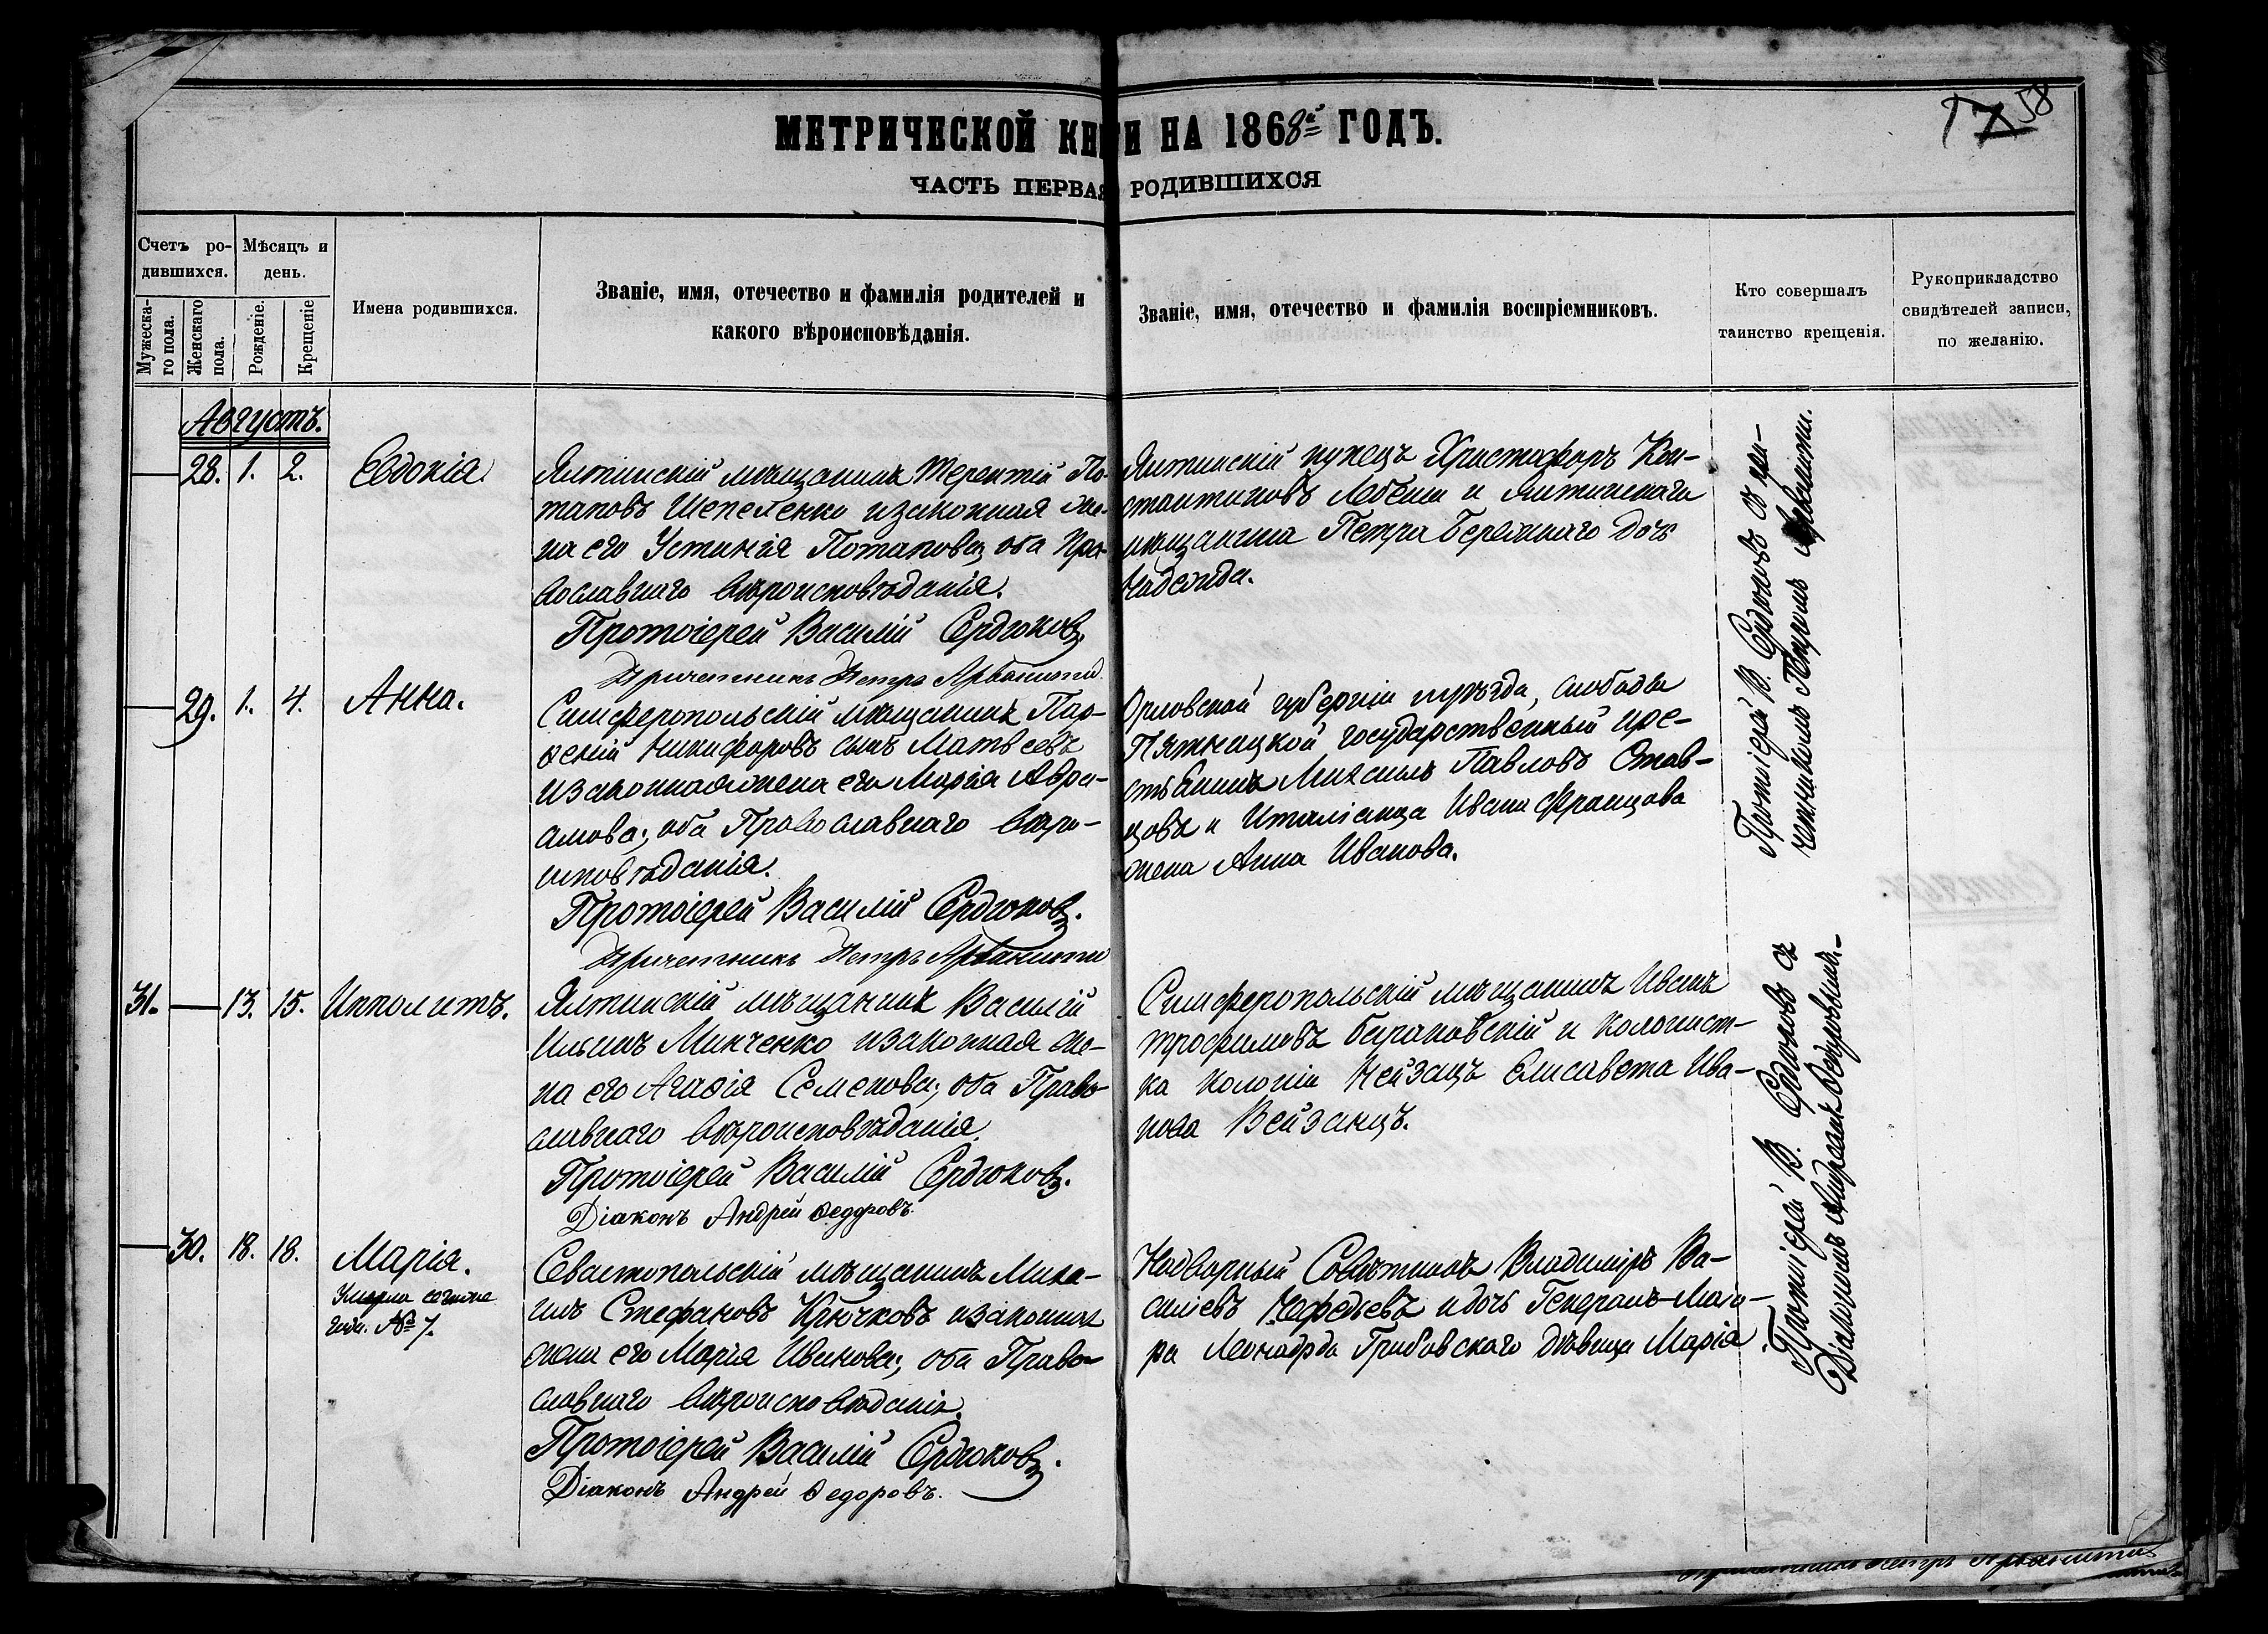 МЕТРИЧЕСКОЙ КНИГИ НА 1868й ГОДЪ.
58
ЧАСТЬ ПЕРВАЯ РОДИВШИХСЯ
Счетъ ро-
дившихся.
Мужеска-
го пола.
Женскаго
пола.
Мѣсяцъ и
день.
Рожденіе.
Крещеніе
Имена родившихся.
Званіе, имя, отечество и фамилія родителей и
какого вѣроисповѣданія.
Званіе, имя, отечество и фамилія воспріемниковъ.
Кто совершалъ
таинство крещенія.
Рукоприкладство
свидѣтелей записи,
по желанію.
Августъ.
28. 1. 2. Евдокія
Ялтинскій мѣщанинъ Терентій По-
таповъ Шепеленко и законная же-
на его Устинія Потапова, оба Пра-
вославнаго вѣроисповѣданія.
Протоіерей Василій Сердюковъ.
Причетникъ Петръ Арванити
Ялтинскій купецъ Христофоръ Кон-
стантиновъ и Ялтинскаго
мѣщанина Петра Бережнаго дочь
Надежда.
Протоіерей В. Сердюковъ съ при-
четникомъ Петромъ Арванити.
29. 1. 4. Анна.
Симферопольскій мѣщанинъ Пар-
феній Никифоровъ сынъ Матвеевъ
и законная жена его Марія Авра-
амова; оба Православнаго вѣро-
исповѣданія.
Протоіерей Василій Сердюковъ.
Причетникъ Петръ Арванити
Орловской губерніи и уѣзда, слободы
Пятницкой государственный кре-
стьянинъ Михаилъ Павловъ Став-
цовъ и Италіанца Ивана Францова
жена Анна Иванова.
31. 13. 15. Ипполитъ.
Ялтинскій мѣщанинъ Василій
Ильинъ Минченко и законная же-
на его Агафія Семенова; оба Право-
славнаго вѣроисповѣданія.
Протоіерей Василій Сердюковъ.
Діаконъ Андрей Федоровъ.
Симферопольскій мѣщанинъ Иванъ
Трофимовъ Барановскій и колонист-
ка колоніи Нейзацъ Елисавета Ива-
нова Вейзанцъ.
Протоіерей В. Сердюковъ съ
Діакономъ Андреемъ Федоровымъ.
30. 18. 18. Марія.
Умерла сего же
года. № 7.
Севастопольскій мѣщанинъ Миха-
илъ Стефановъ Крючковъ и законная
жена его Марія Иванова; оба Право-
славнаго вѣроисповѣданія.
Протоіерей Василій Сердюковъ.
Діаконъ Андрей Федоровъ.
Надворный Совѣтникъ Владимиръ Ва-
силіевъ Нефедьевъ и дочь Генералъ-Маіо-
ра Леонарда Грибовскаго дѣвица Марія.
Причетникъ Петръ Арванити